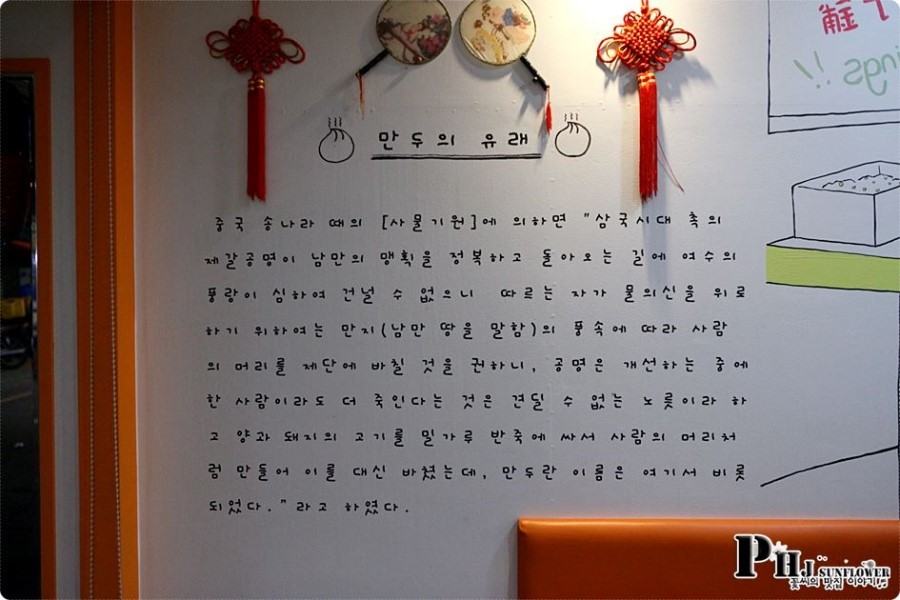 만두의 유래
중국 송나라 때의 [사물기원]에 의하면 "삼국시대 촉의
제갈공명이 남만의 맹획을 정복하고 돌아오는 길에 여수의
풍랑이 심하여 건널 수 없으니 따르는 자가 물의신을 위로
하기 위하여는 만지(남만 땅을 말함)의 풍속에 따라 사람
의 머리를 제단에 바칠 것을 권하니, 공명은 개선하는 중에
한 사람이라도 더 죽인다는 것은 견딜 수 없는 노릇이라 하
고 양과 돼지의 고기를 밀가루 반죽에 싸서 사람의 머리처
럼 만들어 이를 대신 바쳤는데, 만두란 이름은 여기서 비롯
되었다."라고 하였다.
PHJ SUNFLOWER
꽃씨의 맛집 이야기